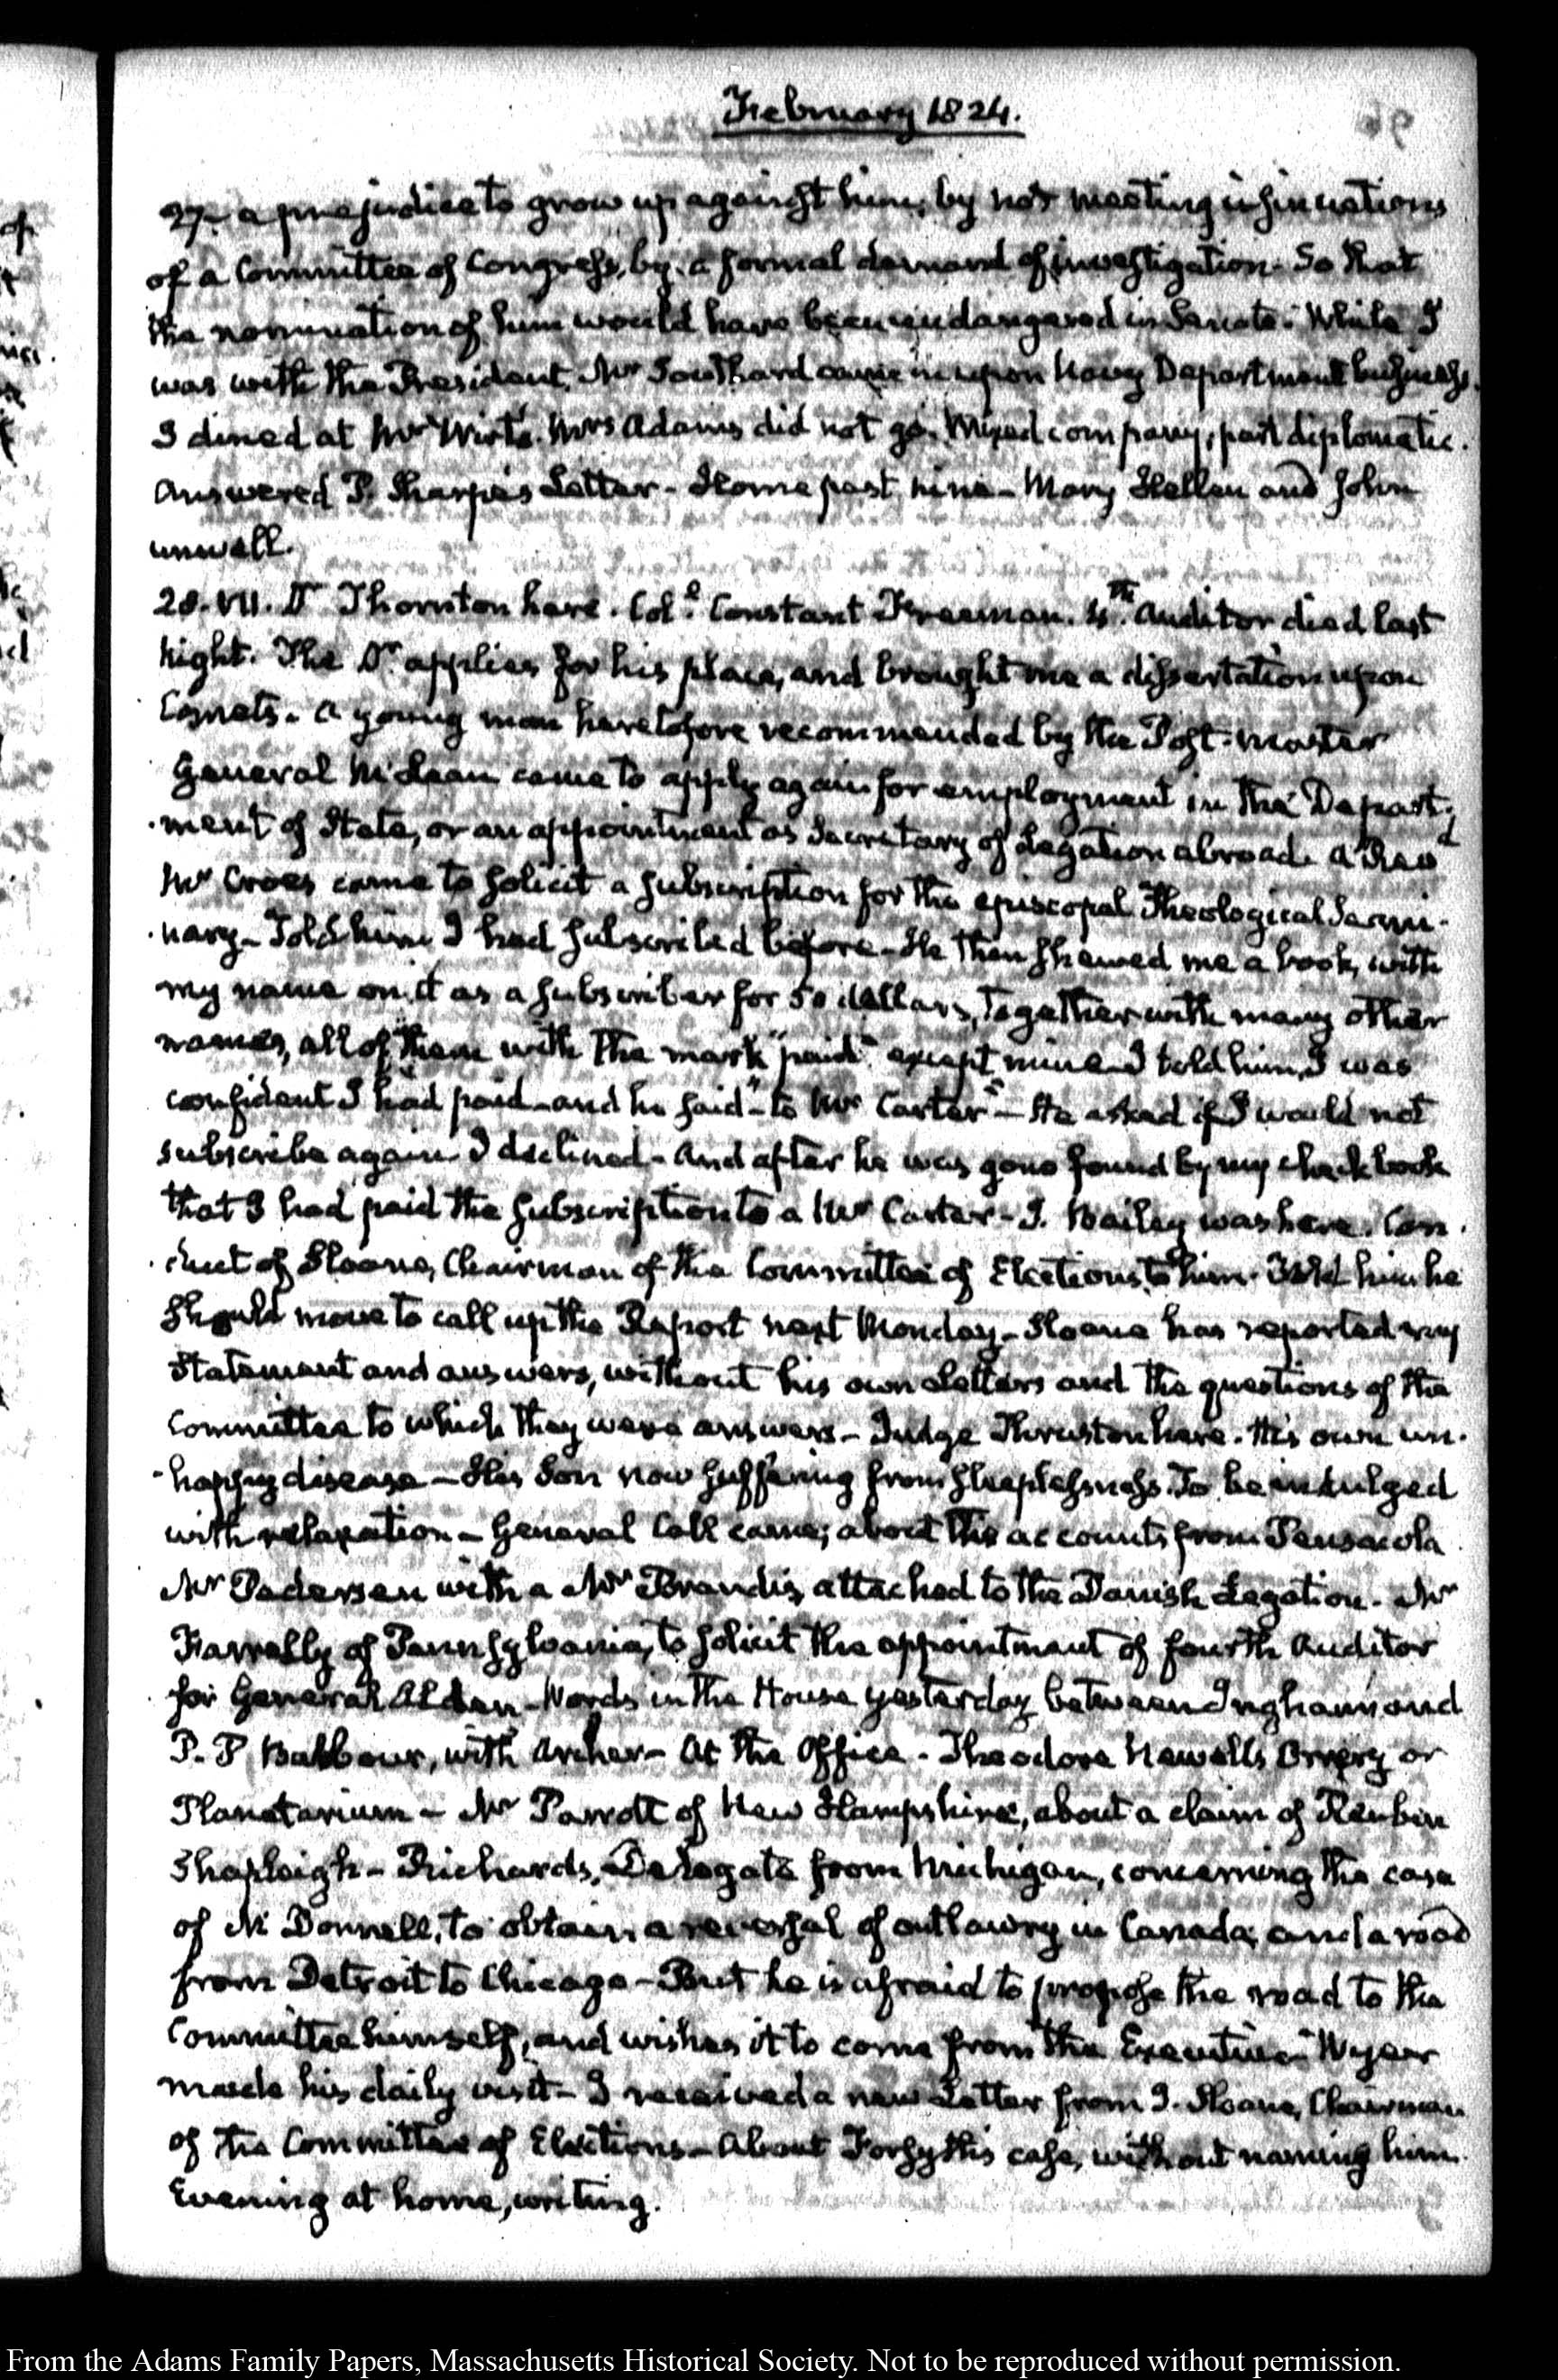 February 1824.
27. a prejudice to grow up against him, by not meeting insinuations
of a Committee of Congress, by a formal demand of investigation. So that
the nomination of him would have been endangered in Senate. While I
was with the President, Mr Southard came in upon Navy Department business.
I dined at Mr Wirt's. Mrs Adams did not go. Mixed company, part diplomatic.
Answered P. Sharpe's Letter - Home past nine - Mary Hellen and John
unwell.
28. VII. Dr Thornton here. Col.l Constant Freeman. 4th. Auditor died last
night. The Dr applies for his place, and brought me a dissertation upon
Comets. A young man heretofore recommended by the Post-Master
General McLean came to apply again for employment in the Depart-
-ment of State, or an appointment as Secretary of Legation abroad. A Revd
Mr Croes came to solicit a subscription for the episcopal Theological Semi-
-nary - Told him I had subscribed before - He then shewed me a book, with
my name on it as a subscriber for 50 dollars, together with many other
names, all of them with the mark "paid" except mine - I told him, I was
confident I had paid - and he said "to Mr Carter" - He asked if I would not
subscribe again - I declined - And after he was gone found by my check book
that I had paid the subscription to a Mr Carter - J. Bailey was here. Con-
-duct of Sloane, Chairman of the Committee of Elections, to him. Told him he
should move to call up the Report next Monday - Sloane has reported my
Statement and answers, without his own Letters and the questions of the
Committee to which they were answers - Judge Thruston here. His own un-
-happy disease - His Son now suffering from sleeplessness. To be indulged
with relaxation - General Call came, about the accounts from Pensacola
Mr Pedersen with a Mr Brandis, attached to the Danish Legation. Mr
Farrelly of Pennsylvania, to solicit the appointment of fourth Auditor
for General Alden - Words in the House yesterday between Ingham and
P. P Barbour, with Archer - At the Office - Theodore Newell's Orrery or
Planetarium - Mr Parrott of New Hampshire, about a claim of Reuben
Shapleigh - Richards, Delegate from Michigan, concerning the case
of McDonnell, to obtain a reversal of outlawry in Canada, and a road
from Detroit to Chicago - But he is afraid to propose the road to the
Committee himself, and wishes it to come from the Executive - Wyer
made his daily visit - I received a new Letter from J. Sloane, Chairman
of the Committee of Elections - About Forsyth's case, without naming him.
Evening at home, writing.
From the Adams Family Papers, Massachusetts Historical Society. Not to be reproduced without permission.